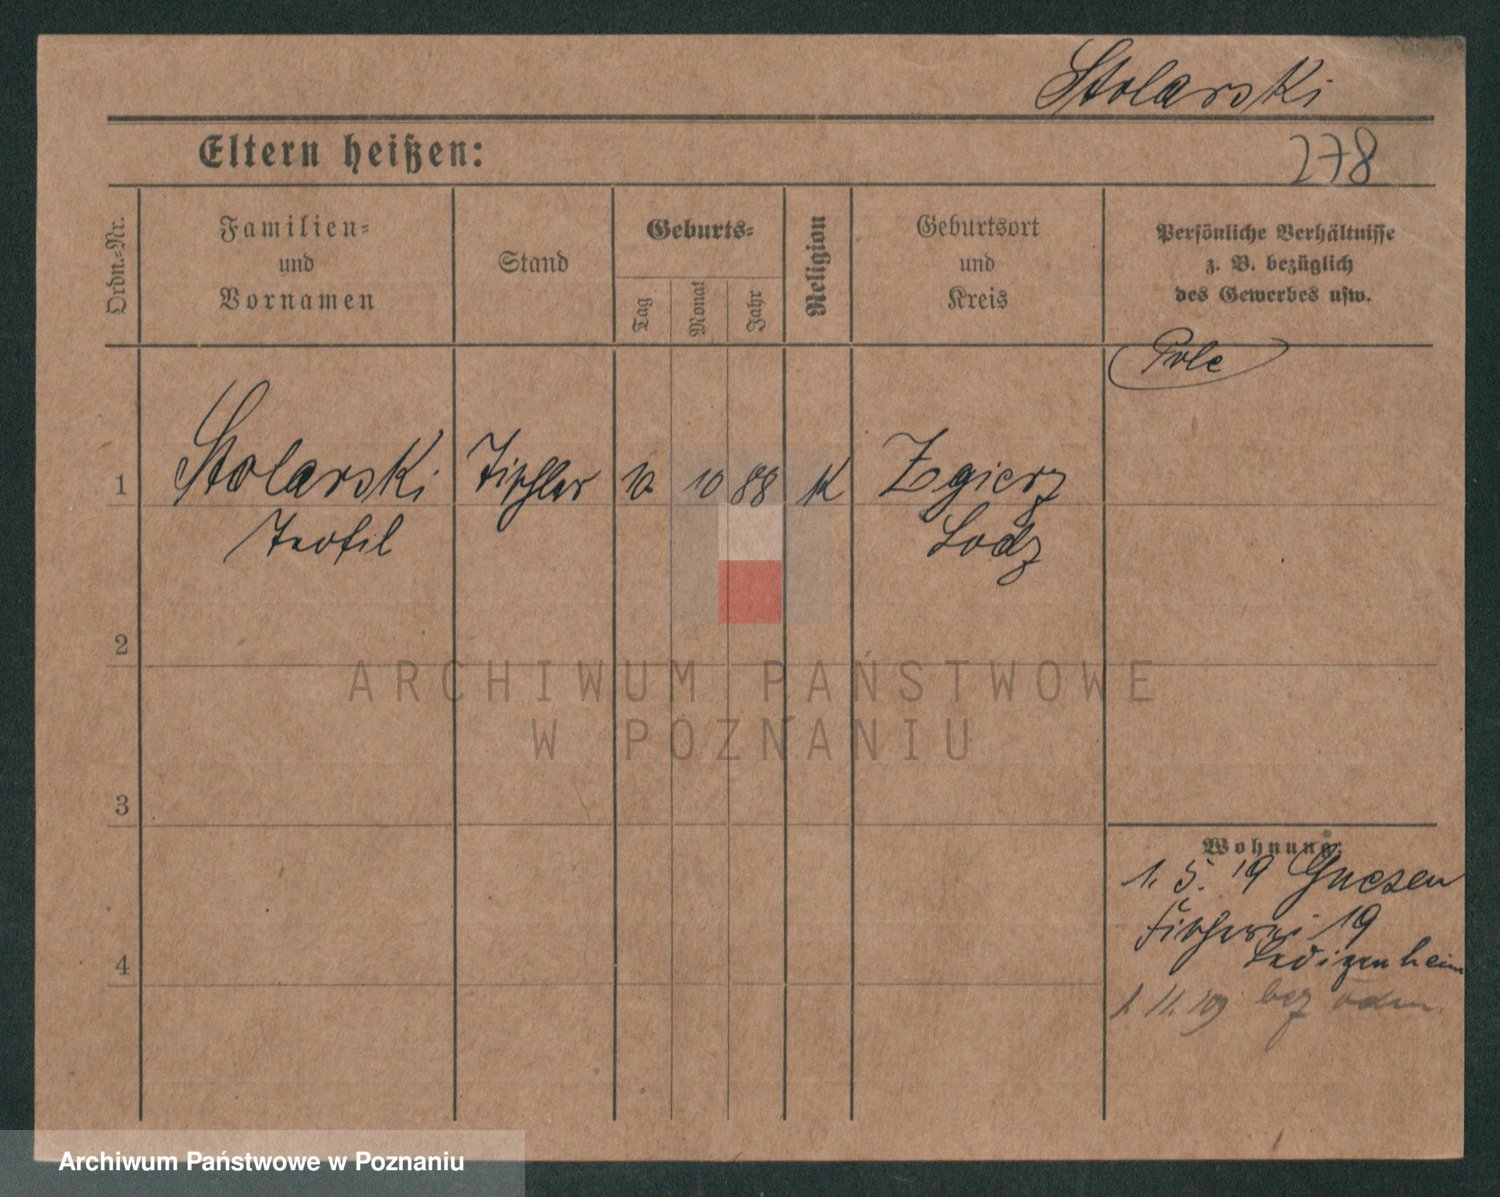 Stolarski
Eltern heißen:
278
Ordn.-Nr.
Familien-
und
Vornamen
Stand
Geburts-
Tag
Monat
Jahr
Religion
Geburtsort
und
Kreis
Persönliche Verhältnisse
z. B. bezüglich
des Gewerbes usw.
Pole
1 Stolarski Tischler 10 10 88 K Zgierz
Teofil Lodz
2
ARCHIWUM PAŃSTWOWE
W POZNANIU
3
Wohnung:
1. 5. 19 Gnesen
Fischerei 19
Ledigenheim
4
1. 11. 19
Archiwum Państwowe w Poznaniu